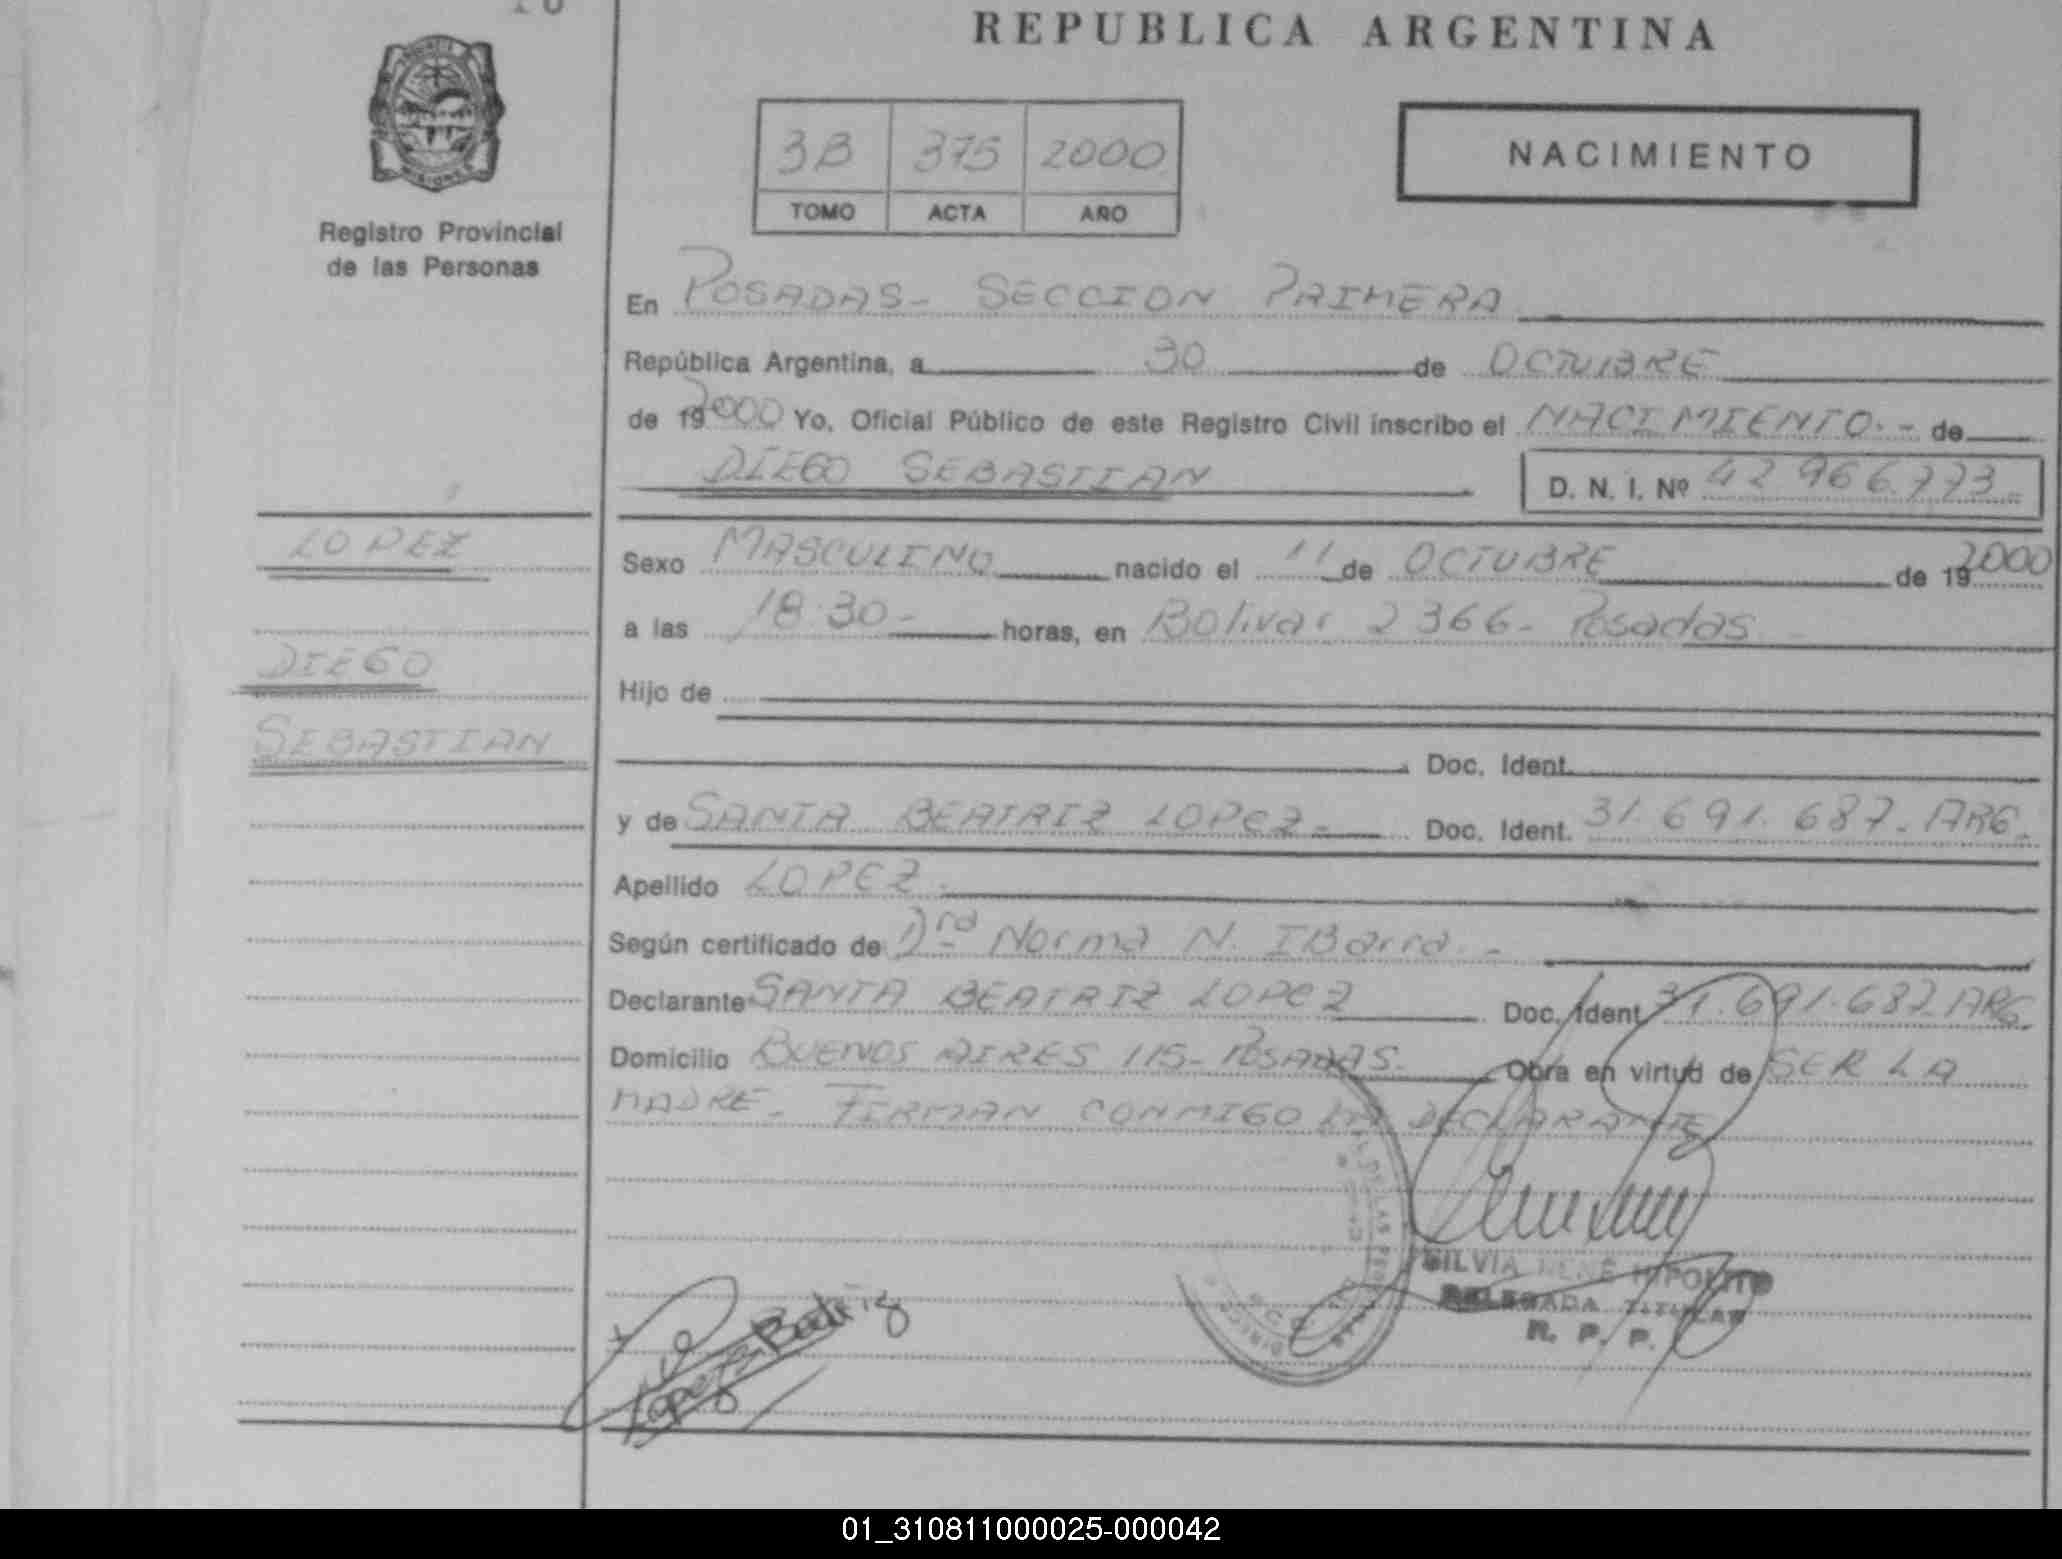 REPUBLICA ARGENTINA
MISIONES
Registro Provincial
de las Personas
3B 375 2000
TOMO ACTA AÑO
NACIMIENTO
En POSADAS- SECCION PRIMERA
República Argentina, a 30 de OCTUBRE
de 19 2000 Yo, Oficial Público de este Registro Civil inscribo el NACIMIENTO.- de
DIEGO SEBASTIAN D. N. I. Nº 42 966.773-
LOPEZ
DIEGO
SEBASTIAN
Sexo MASCULINO nacido el 11 de OCTUBRE de 19 2000
a las 18.30- horas, en Bolivar 2366- Posadas
Hijo de
Doc. Ident.
y de SANTA BEATRIZ LOPEZ- Doc. Ident. 31.691.687-ARG-
Apellido LOPEZ.
Según certificado de Dra Norma N. IBarra.-
Declarante SANTA BEATRIZ LOPEZ Doc. Ident 31.691.687-ARG.
Domicilio BUENOS AIRES 115- POSADAS- Obra en virtud de SER LA
MADRE- FIRMAN CONMIGO LA DECLARANTE
SILVIA RENÉ HIPOLITO
DELEGADA TITULAR
R. P. P.
01_310811000025-000042